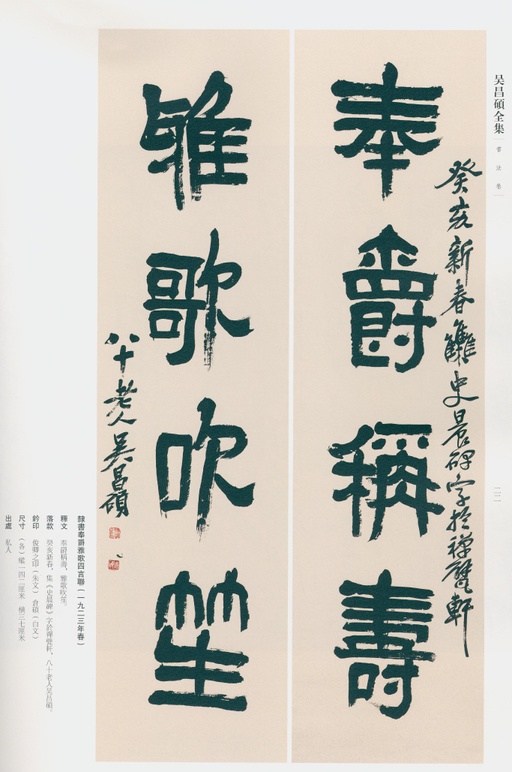 吴昌碩全集
書法卷
癸亥新春集史晨碑字於禪甓軒
奉爵稱壽
雅歌吹笙
八十老人吴昌碩
二二
隸書奉爵雅歌四言聯（一九二三年春）
釋文 奉爵稱壽，雅歌吹笙。
落款 癸亥新春，集《史晨碑》字於禪甓軒，八十老人吴昌碩。
鈐印 俊卿之印（朱文） 倉碩（白文）
尺寸 （各）縱一四二厘米 橫三七厘米
出處 私人